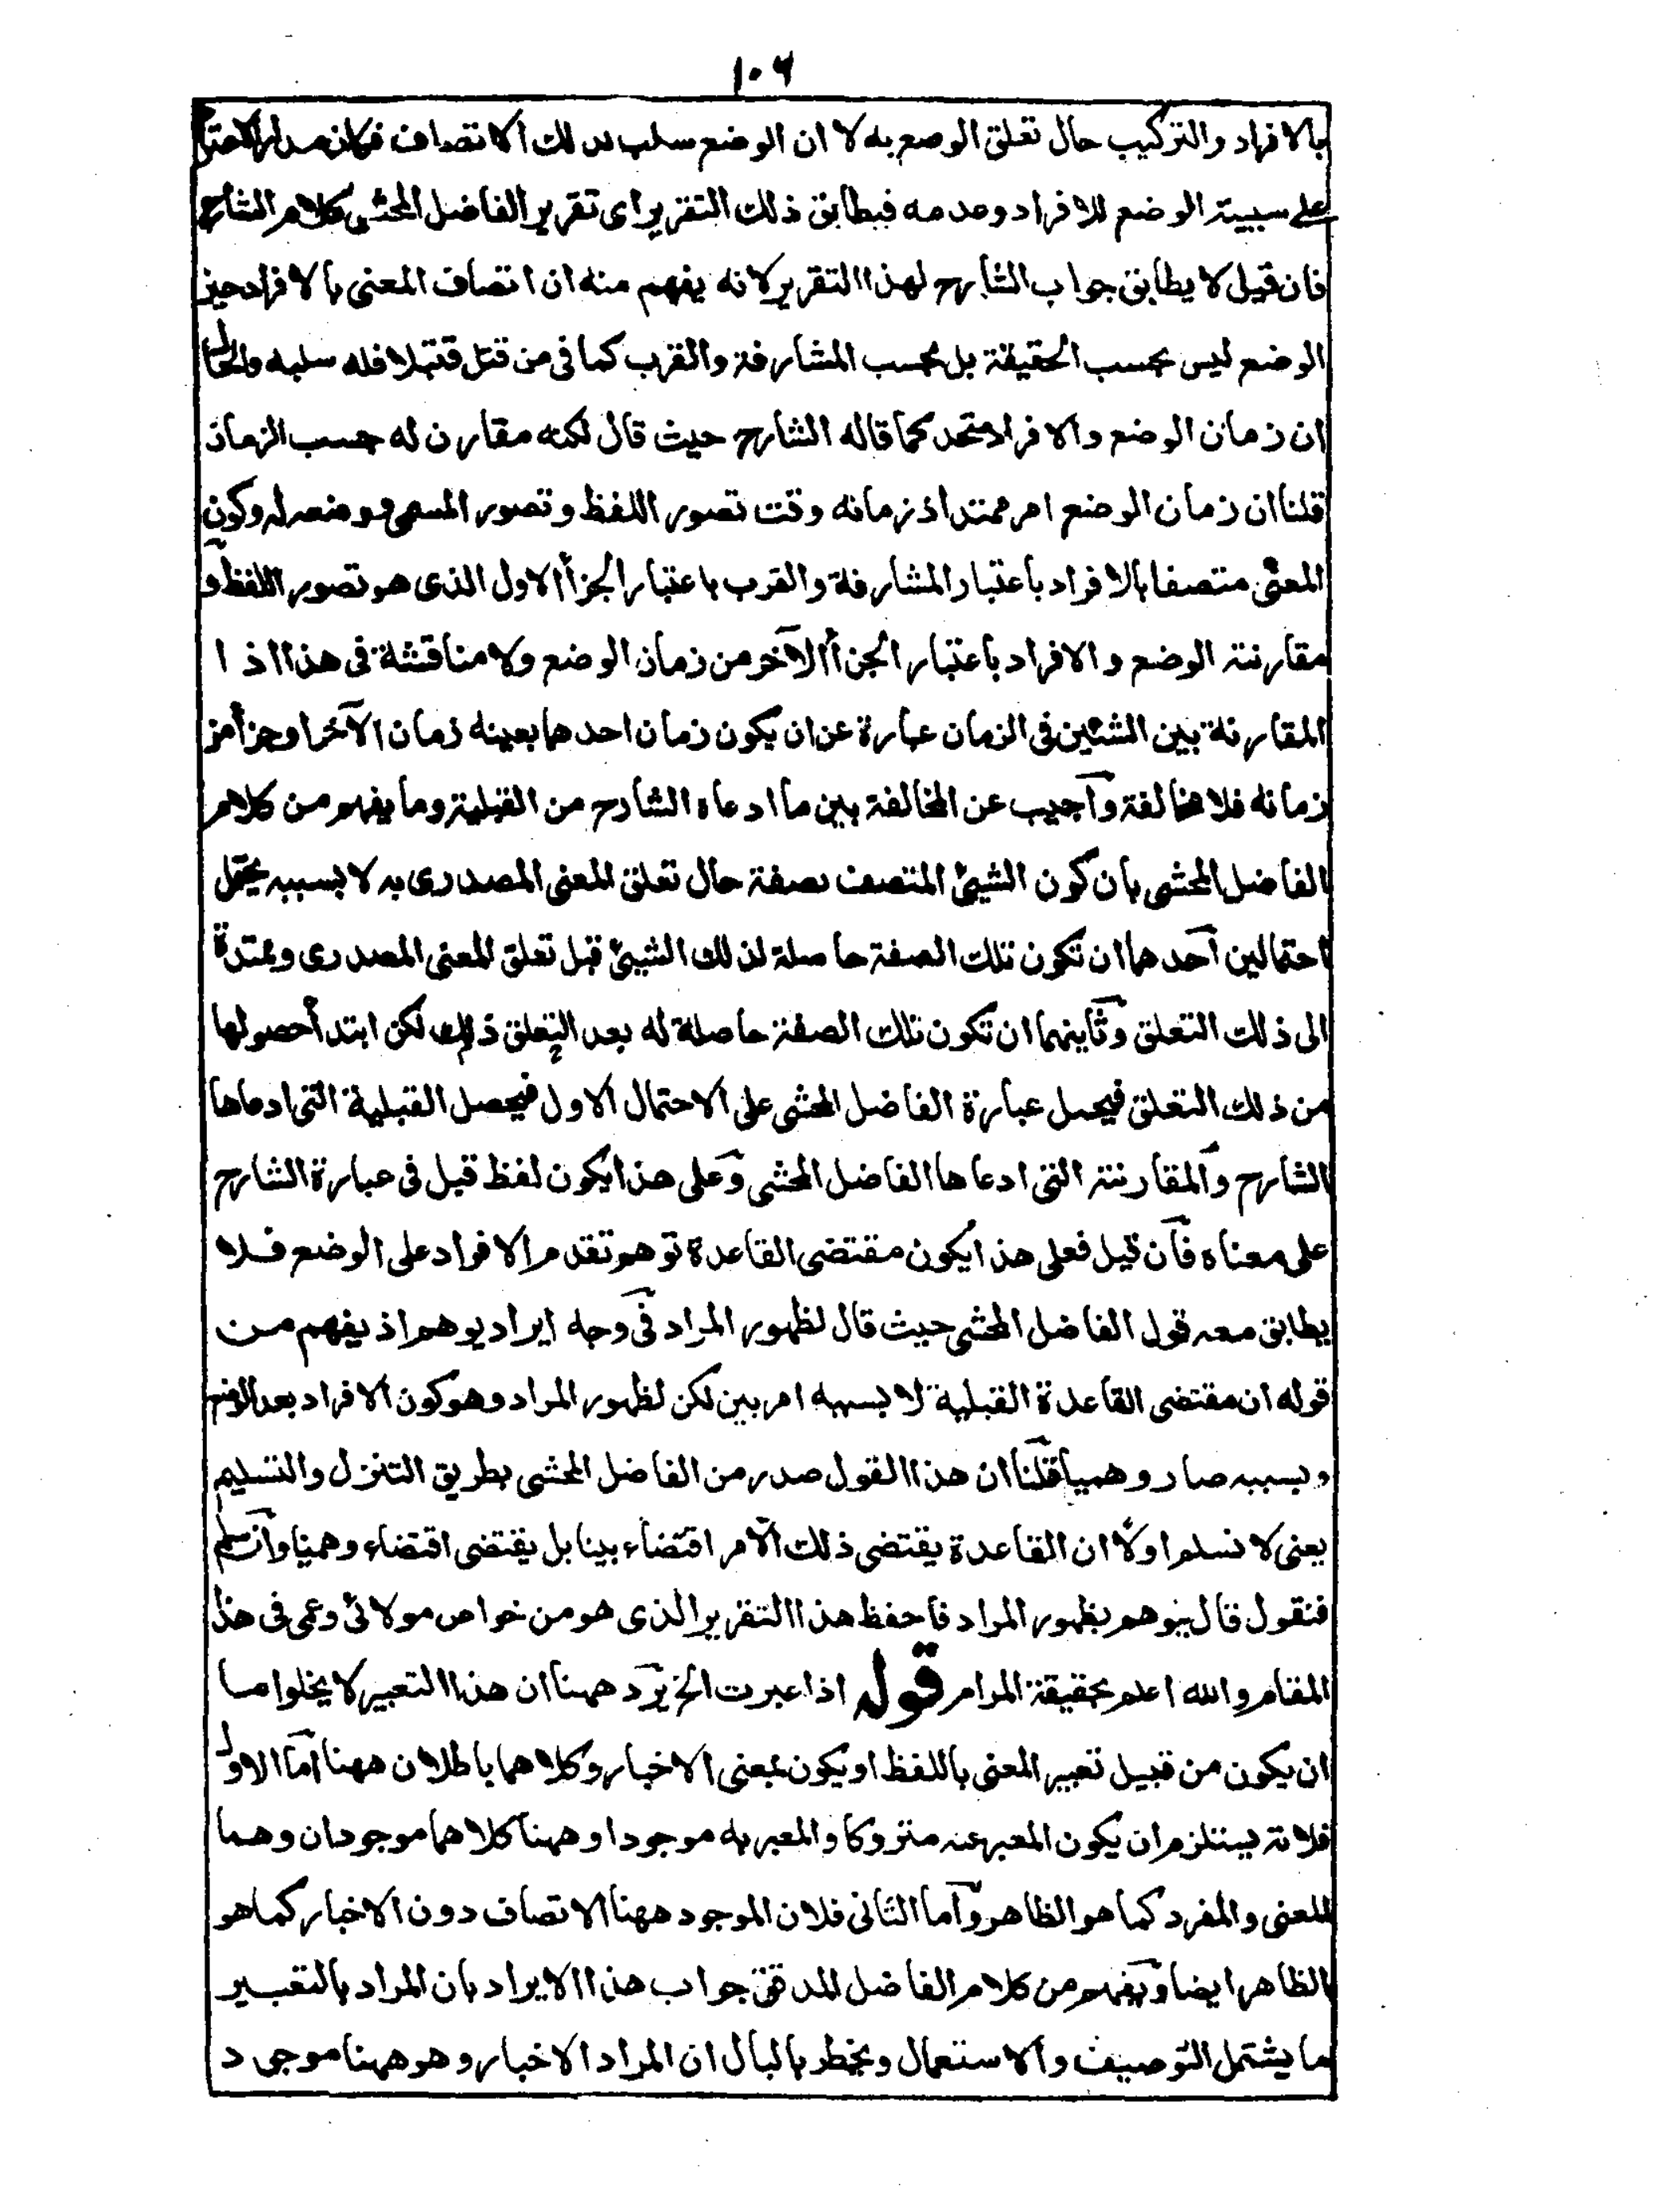 ١٠٦
بالافراد والتركيب حال تعلق الوضع به لا ان الوضع سبب لذلك الاتصاف فكان مدار الاعتراض
على سببية الوضع للافراد وعدمه فيطابق ذلك التقرير اى تقرير الفاضل المحشى كلام الشارح
فان قيل لا يطابق جواب الشارح لهذا التقرير لانه يفهم منه ان اتصاف المعنى بالافراد حين
الوضع ليس بحسب الحقيقة بل بحسب المشارفة والقرب كما فى من قتل قتيلا فله سلبه والحال
ان زمان الوضع والافراد متحد كما قاله الشارح حيث قال لكنه مقارن له بحسب الزمان
قلنا ان زمان الوضع امر ممتد اذ زمانه وقت تصور اللفظ وتصور المسمى ووضعه له وكون
المعنى متصفا بالافراد باعتبار المشارفة والقرب باعتبار الجزأ الاول الذى هو تصور اللفظ و
مقارنته الوضع والافراد باعتبار الجزأ الآخر من زمان الوضع ولا مناقشة فى هذا اذ ا
المقارنة بين الشئين فى الزمان عبارة عن ان يكون زمان احدهما بعينه زمان الآخر او جزأ من
زمانه فلا مخالفة وآجيب عن المخالفة بين ما ادعاه الشارح من القبلية وما يفهم من كلام
الفاضل المحشى بان كون الشيئ المتصف بصفة حال تعلق المعنى المصدرى به لا بسببه يحتمل
احتمالين آحدهما ان تكون تلك الصفة حاصلة لذلك الشيئ قبل تعلق المعنى المصدرى وممتدة
الى ذلك التعلق وثانيهما ان تكون تلك الصفة حاصلة له بعد التعلق ذلك لكن ابتدأ حصولها
من ذلك التعلق فيحمل عبارة الفاضل المحشى على الاحتمال الاول فيحصل القبلية التى ادعاها
الشارح والمقارنته التى ادعاها الفاضل المحشى وعلى هذا يكون لفظ قبل فى عبارة الشارح
على معناه فآن قيل فعلى هذا يكون مقتضى القاعدة توهم تقدم الافراد على الوضع فلا
يطابق معه قول الفاضل المحشى حيث قال لظهور المراد فى وجه ايراد يوهم اذ يفهم من
قوله ان مقتضى القاعدة القبلية لا بسببه امر بين لكن لظهور المراد وهو كون الافراد بعد الوضع
وبسببه صار وهميا قلنا ان هذا القول صدر من الفاضل المحشى بطريق التنزل والتسليم
يعنى لا نسلم اولا ان القاعدة يقتضى ذلك الامر اقتضاء بينا بل يقتضى اقتضاء وهميا وآن سلم
فنقول قال يوهم بظهور المراد فاحفظ هذا التقرير الذى هو من خواص مولائى وعمى فى هذا
المقام والله اعلم بحقيقة المرام قوله اذا عبرت الخ يرد ههنا ان هذا التعبير لا يخلوا ما
ان يكون من قبيل تعبير المعنى باللفظ او يكون بمعنى الاخبار وكلاهما باطلان ههنا آما الاول
فلانه يستلزم ان يكون المعبر عنه متروكا والمعبر به موجودا وههنا كلاهما موجودان وهما
المعنى والمفرد كما هو الظاهر وآما الثانى فلان الموجود ههنا الاتصاف دون الاخبار كما هو
الظاهر ايضا ويفهم من كلام الفاضل المدقق جواب هذا الايراد بان المراد بالتعبير
ما يشتمل التوصيف والاستعمال ويخطر بالبال ان المراد الاخبار وهو ههنا موجود